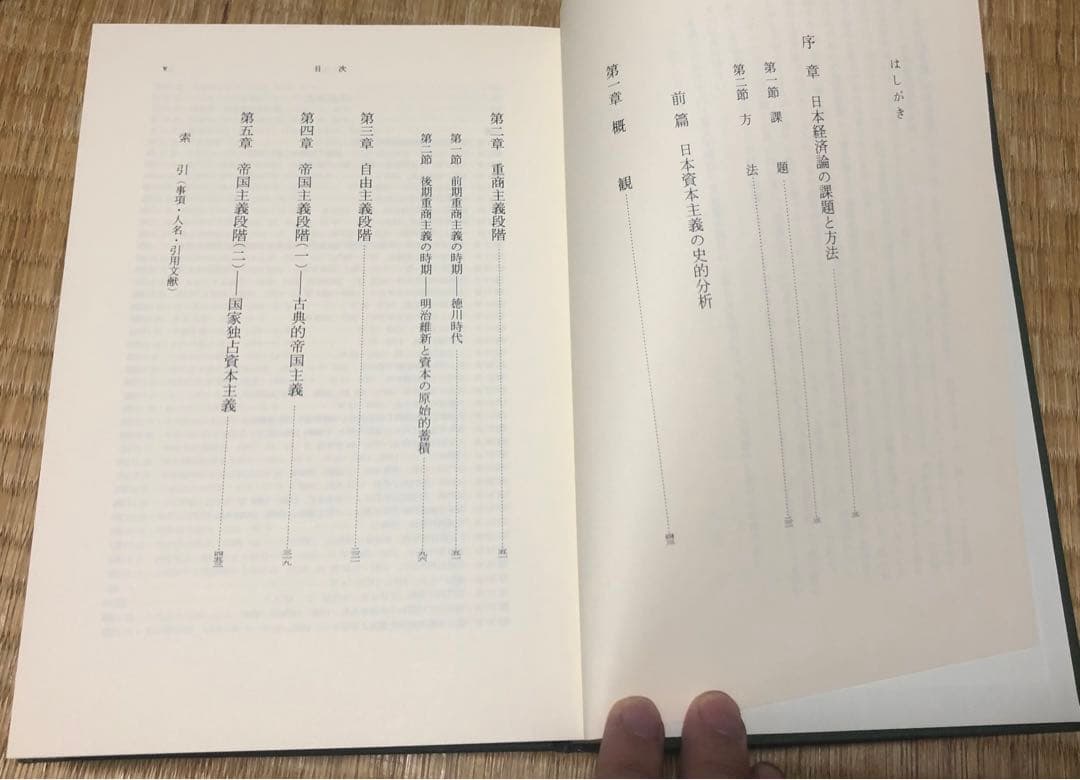 はしがき
序章 日本経済論の課題と方法……三
第一節 課題……三
第二節 方法……三
前篇 日本資本主義の史的分析
第一章 概観……四三
目次
v
第二章 重商主義段階……五一
第一節 前期重商主義の時期――徳川時代……五一
第二節 後期重商主義の時期――明治維新と資本の原始的蓄積……九六
第三章 自由主義段階
第四章 帝国主義段階(一)――古典的帝国主義……三一九
第五章 帝国主義段階(二)――国家独占資本主義……四五三
索引(事項・人名・引用文献)